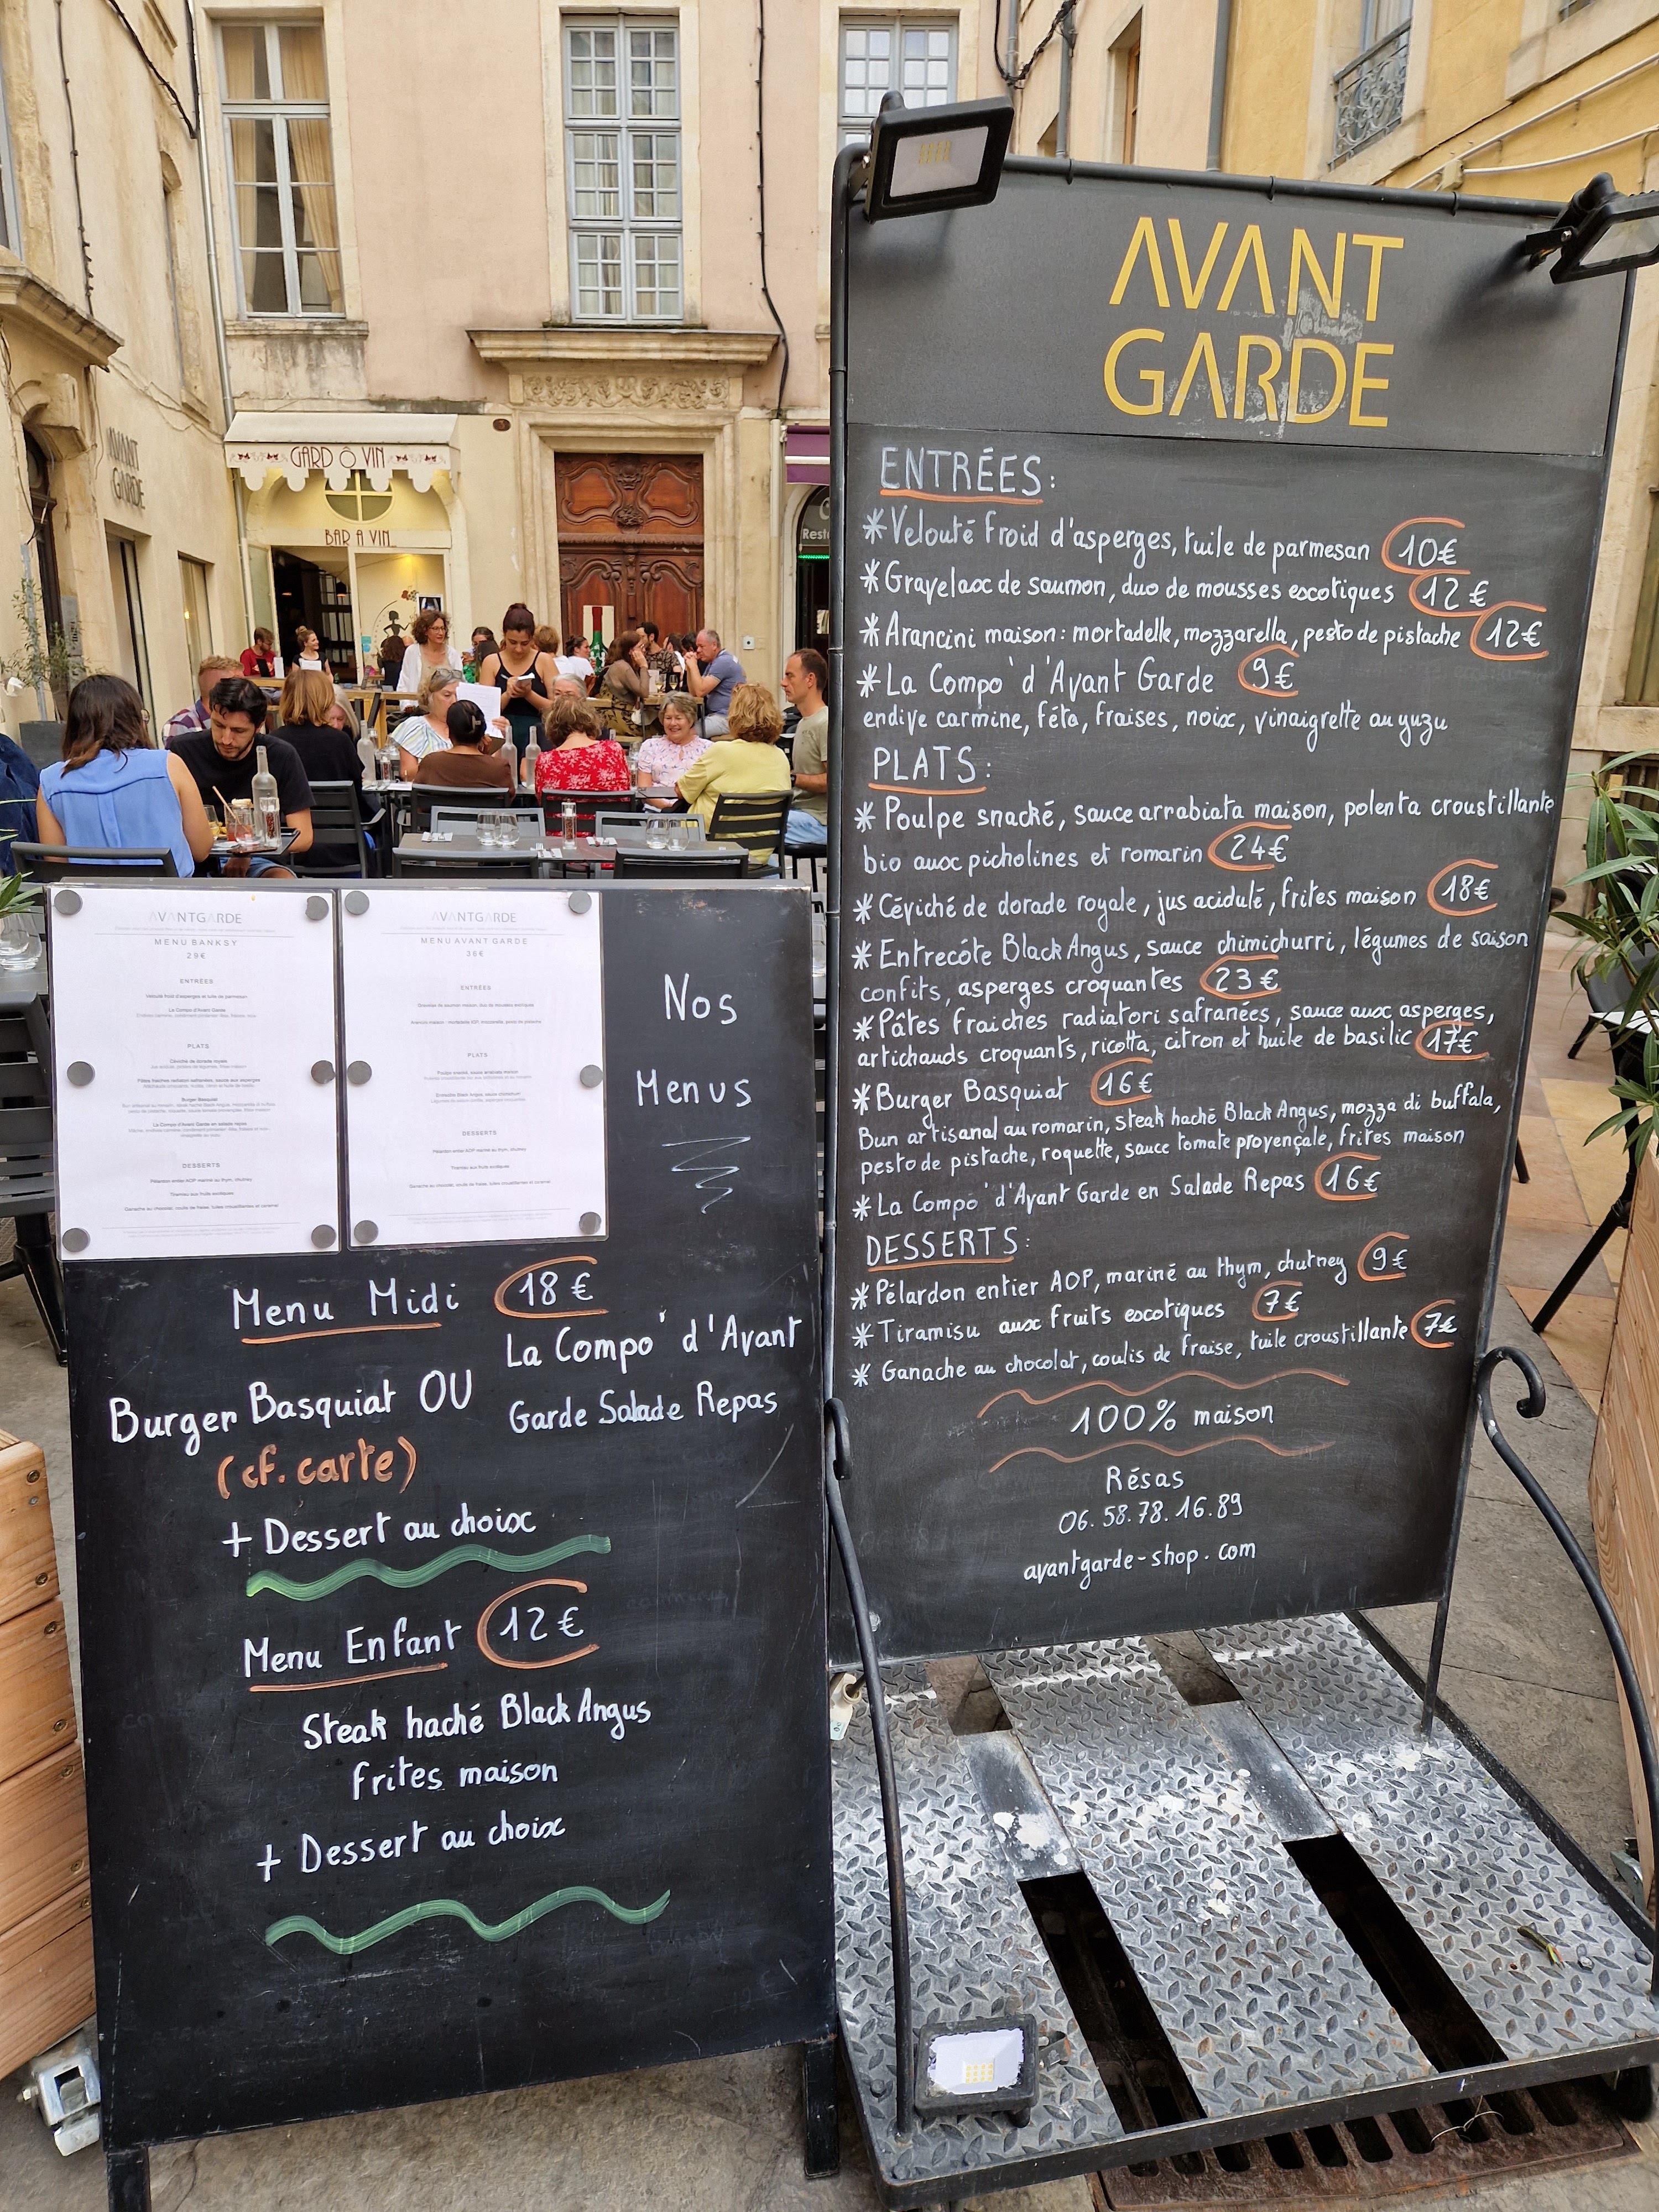 AVANT
GARDE
GARD Ô VIN
BAR A VIN
AVANT
GARDE
ENTRÉES:
* Velouté froid d'asperges, tuile de parmesan 10€
* Gravelax de saumon, duo de mousses exotiques 12€
* Arancini maison: mortadelle, mozzarella, pesto de pistache 12€
* La Compo' d'Avant Garde 9€
endive carmine, féta, fraises, noix, vinaigrette au yuzu
PLATS:
* Poulpe snacké, sauce arrabiata maison, polenta croustillante
bio aux picholines et romarin 24€
* Céviché de dorade royale, jus acidulé, frites maison 18€
* Entrecôte Black Angus, sauce chimichurri, légumes de saison
confits, asperges croquantes 23€
* Pâtes fraiches radiatori safranées, sauce aux asperges,
artichauds croquants, ricotta, citron et huile de basilic 17€
* Burger Basquiat 16€
Bun artisanal au romarin, steak haché Black Angus, mozza di buffala,
pesto de pistache, roquette, sauce tomate provençale, frites maison
* La Compo' d'Avant Garde en Salade Repas 16€
DESSERTS:
* Pélardon entier AOP, mariné au thym, chutney 9€
* Tiramisu aux fruits exotiques 7€
* Ganache au chocolat, coulis de fraise, tuile croustillante 7€
100% maison
Résas
06.58.78.16.89
avantgarde-shop.com
AVANTGARDE
MENU BANKSY
29€
ENTRÉES
Velouté froid d'asperges et tuile de parmesan
La Compo d'Avant Garde
PLATS
Céviché de dorade royale
Burger Basquiat
La Compo d'Avant Garde en salade repas
DESSERTS
Pélardon entier AOP mariné au thym, chutney
Tiramisu aux fruits exotiques
AVANTGARDE
MENU AVANT GARDE
36€
ENTRÉES
PLATS
Poulpe snacké, sauce arrabiata maison
DESSERTS
Pélardon entier AOP mariné au thym, chutney
Tiramisu aux fruits exotiques
Nos
Menus
Menu Midi 18€
Burger Basquiat OU La Compo' d'Avant
Garde Salade Repas
(cf. carte)
+ Dessert au choix
Menu Enfant 12€
Steak haché Black Angus
frites maison
+ Dessert au choix